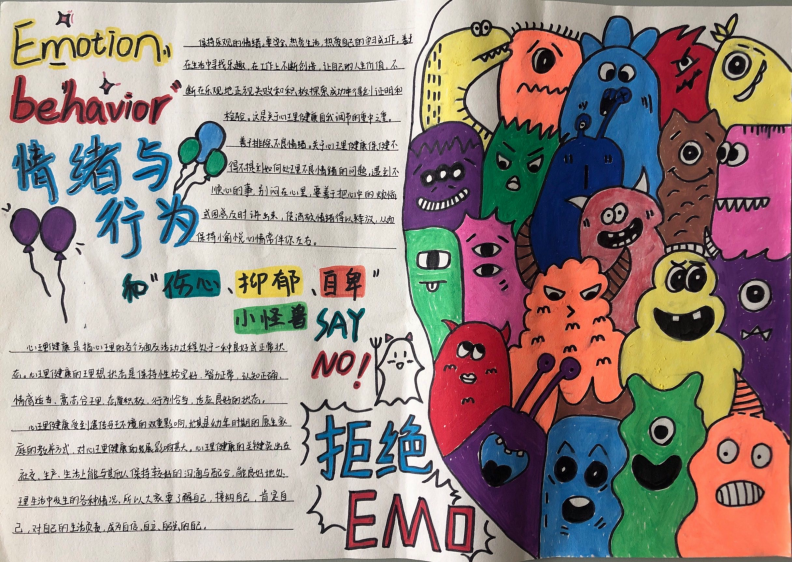 Emotion
behavior
情绪与
行为
保持乐观的情绪,要学会热爱生活,热爱自己的学习和工作,善于
在生活中寻找乐趣,在工作上不断创造,让自己的人生价值,不
断在乐观地去迎接失败和积极探索成功中得到证明和
检验,这是关于心理健康自我调节的重中之重。
善于排除不良情绪,关于心理健康保健不
得不提到如何处理不良情绪的问题,遇到不
顺心的事,别闷在心里,要善于把心中的烦恼
或困惑及时讲出来,使消极情绪得以释放,从而
保持愉悦心情常伴你左右。
和"伤心、抑郁、自卑"
小怪兽 SAY
NO!
心理健康是指心理的各个方面及活动过程处于一种良好或正常状
态。心理健康的理想状态是保持性格完好、智力正常、认知正确、
情感适当、意志合理、态度积极、行为恰当、适应良好的状态。
心理健康受到遗传和环境的双重影响,尤其是幼年时期的原生家
庭的教养方式,对心理健康的发展影响甚大。心理健康的突出在
社交、生产、生活上能与其他人保持较好的沟通与配合,能良好地处
理生活中发生的各种情况,所以大家要了解自己,接纳自己,肯定自
己,对自己的生活负责,成为自信、自立、自强的自己。
拒绝
EMO